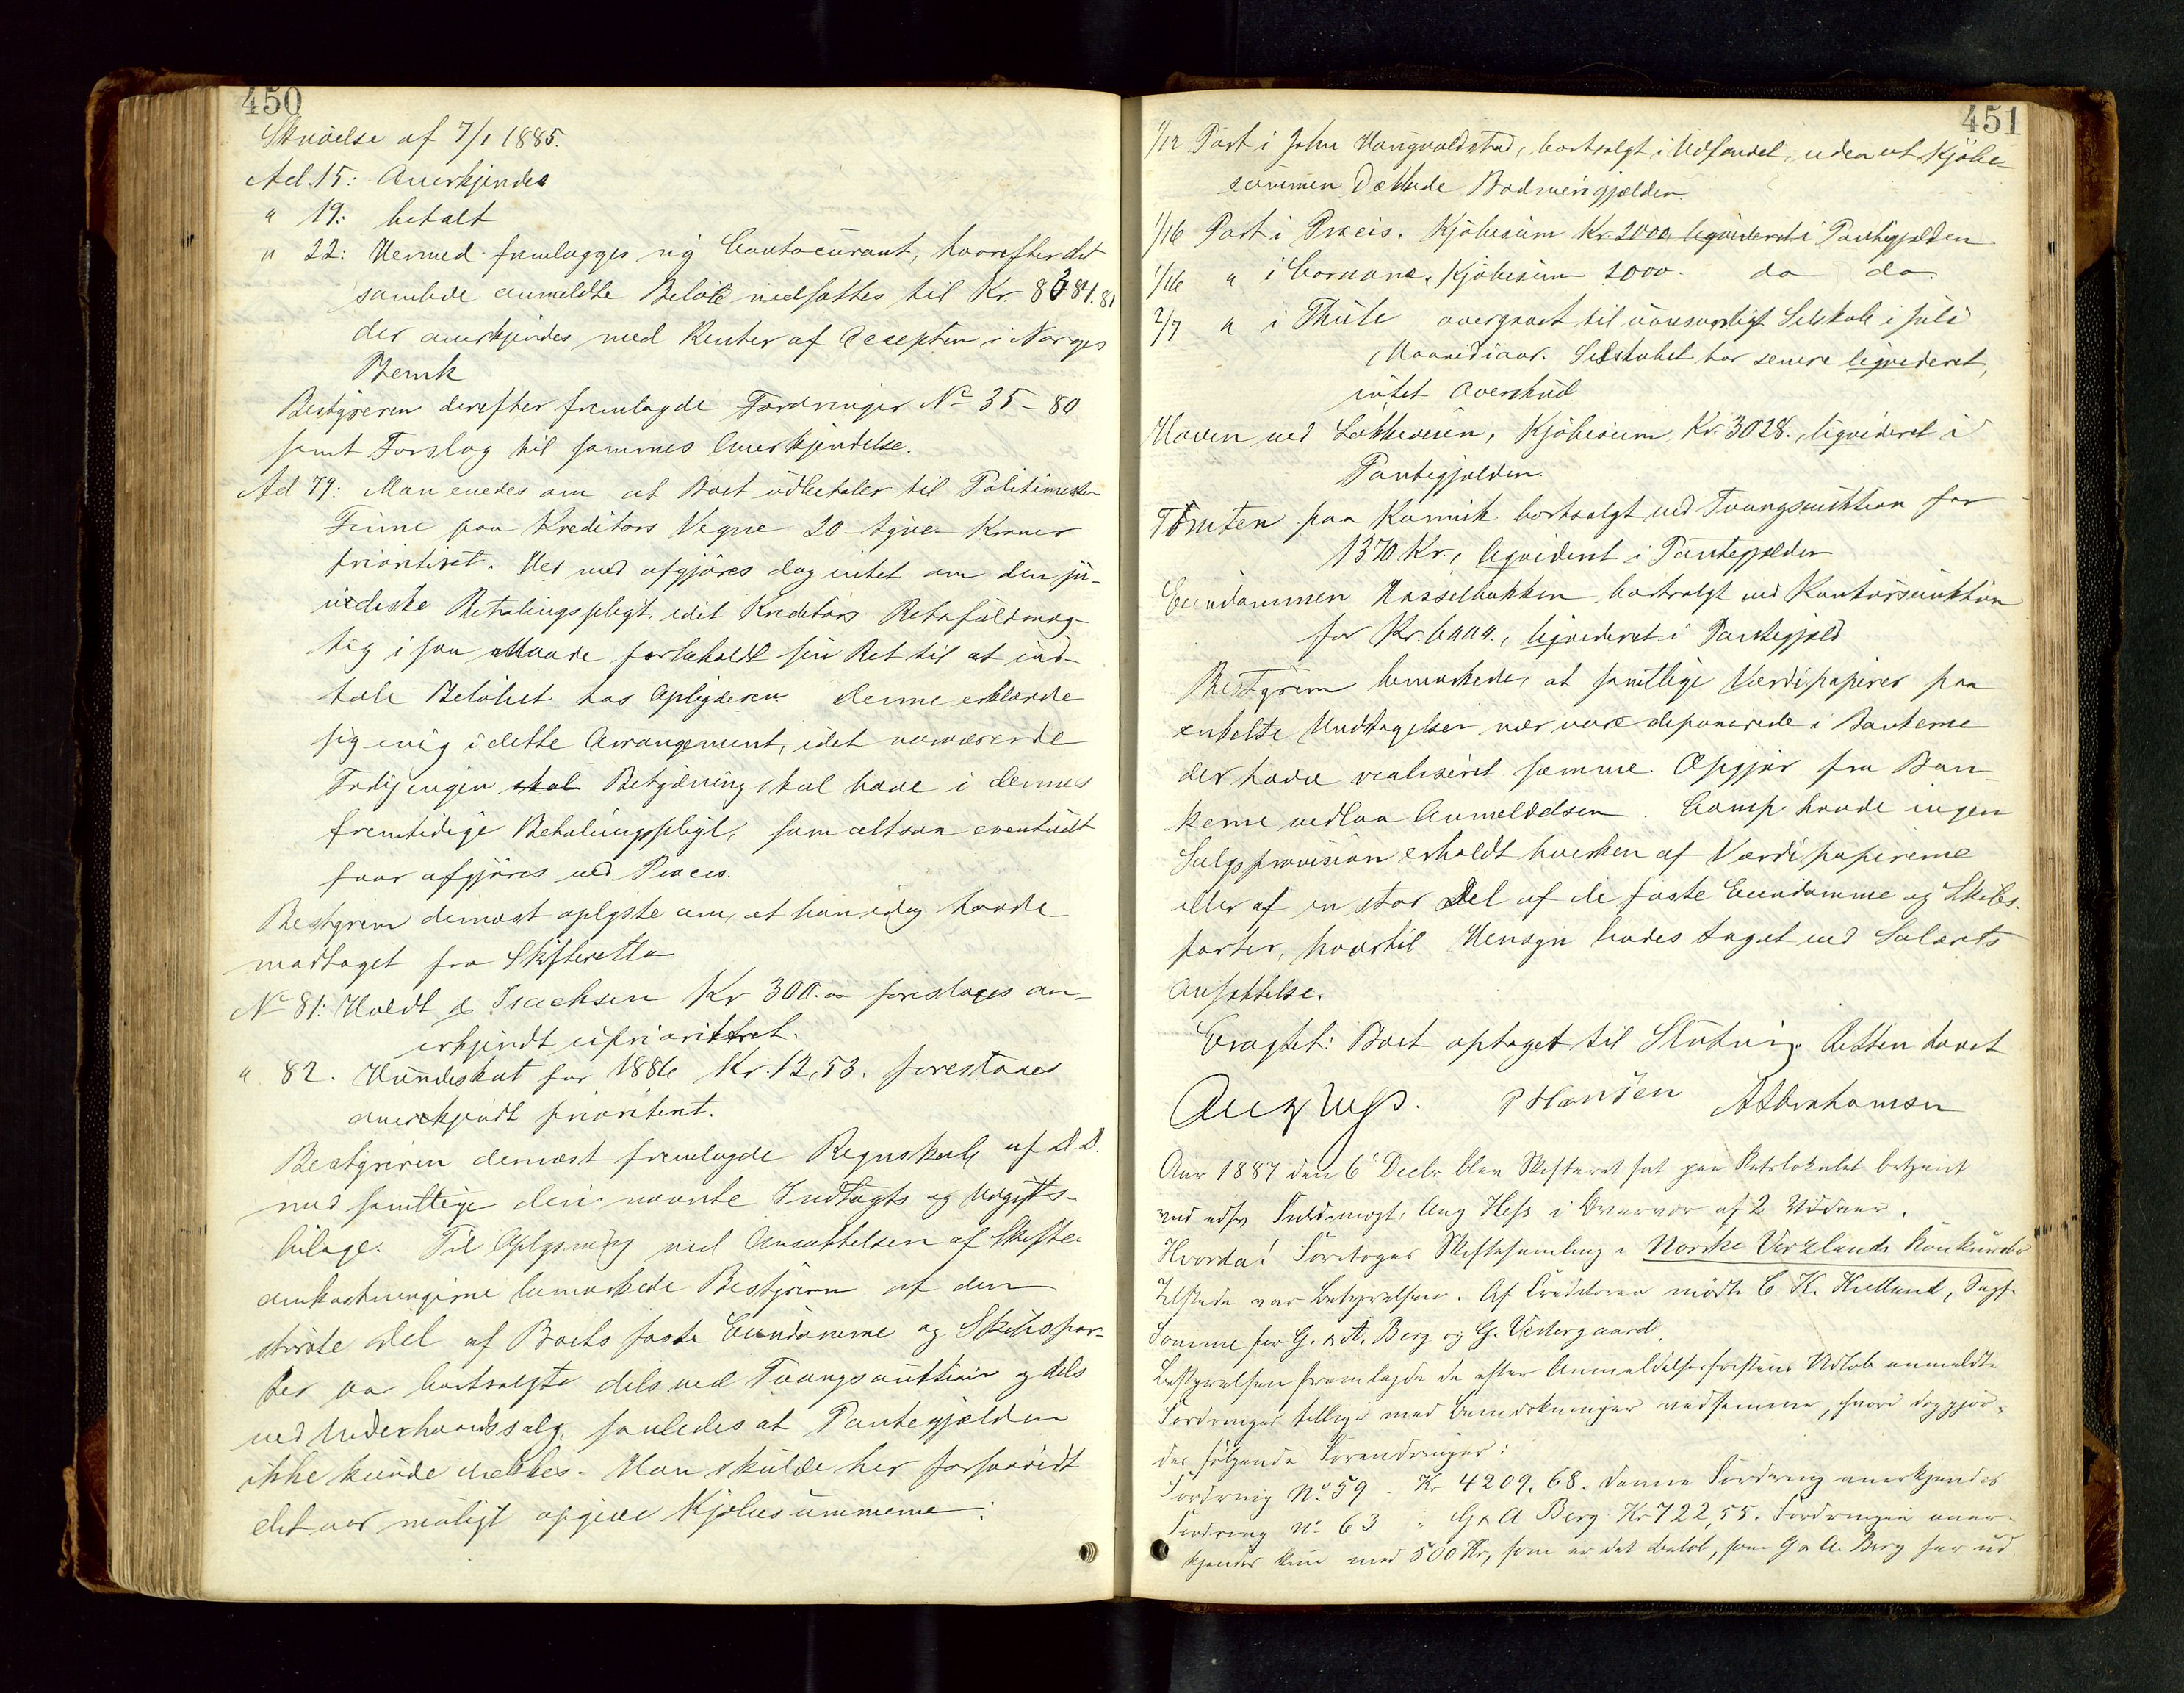 450
Skrivelse af 7/1 1885.
Ad. 15: Anerkjendes
" 19: betalt
" 22: Hermed fremlægges ny Contocurant, hvorefter det
samlede anmeldte Beløb nedsættes til Kr. 8384.81
der anerkjendes med Renter af Accepten i Norges
Bank
Bestyreren derefter fremlagde Fordringer No 35 - 80
samt Forslag til sammes Anerkjendelse.
Ad 79: Man enedes om at Boet udbetaler til Politimester
Finne paa Kreditors Vegne 20 - tyve - Kroner
prioritert. Her ved afgjøres dog intet om den ju-
ridiske Betalingspligt, idet Kreditors Retsfuldmæg-
tig i saa Maade forbeholdt sin Ret til at ind-
tale Beløbet hos Opligeren. Denne erklærede
sig enig i dette Arrangement, idet nærværende
Forlig ingen skal Betydning skal have i dennes
fremtidige Betalingspligt, som altsaa eventuelt
faar afgjøres ved Proces.
Bestyreren dernæst oplyste om, at han idag havde
modtaget fra Skifteretten
No 81: Holdt & Isachsen Kr 300.00 foreslaaes an-
erkjendt uprioritert.
" 82. Hundeskat for 1886 Kr. 12,53. foreslaaes
anerkjendt prioritert.
Bestyreren dernæst fremlagde Regnskab af D. D.
med samtlige deri nævnte Indtægts og Udgifts-
bilage. Til Oplysning ved Ansættelsen af Skifte-
omkostningerne bemærkede Bestyreren at den
største Del af Boets faste Eiendomme og Skibspar-
ter var bortsolgte dels ved Tvangsauktion og dels
ved Underhaandssalg, saaledes at Pantegjælden
ikke kunde dækkes. Man skulde her forsaavidt
det var muligt opgive Kjøbesummerne:
451
1/12 Part i John Haugvaldstad, bortsolgt i Udlandet, uden at Kjøbe-
summen dækkede Bodmerigjælden.
1/16 Part i Præcis. Kjøbesum Kr. 2000 liqvideret i Pantegjælden
1/16 " i Cornane, Kjøbesum 1000. do do.
2/7 " i Thule overgaaet til uansvarligt Selskab i Juli
Maaned iaar. Selskabet har senere liqvideret,
intet Overskud
Haven ved Løkkeveien, Kjøbesum Kr. 3028., liqvideret i
Pantegjælden.
Tomten paa bortsolgt ved Tvangsauktion for
1370 Kr., liqvideret i Pantegjælden
Eiendommen Hasselbakken bortsolgt ved Konkursauktion
for Kr. 6000., liqvideret i Pantegjæld
Bestyreren bemærkede, at samtlige Værdipapirer paa
enkelte Undtagelser nær vare deponerede i Bankerne
der havde realiseret samme. Opgjør fra Ban-
kerne vedlaa Anmeldelsen. Comp. havde ingen
Salgsprovision erholdt hverken af Værdipapirerne
eller af en stor Del af de faste Eiendomme og Skibs-
parter, hvortil Hensyn bedes taget ved Salærets
Ansættelse.
Eragtet: Boet optaget til Slutning. Retten hævet
Aug Hess. P Hansen A Abrahamsen
Aar 1887 den 6' Decbr blev Skifteret sat paa Retslokalet betjent
ved edsv Fuldmægt. Aug Hess i Overvær af 2 Vidner.
Hvorda! Foretoges Skiftesamling i Norske Veritlands Konkursbo
Tilstede var Bestyrelsen. Af Creditorer mødte C. K. Kielland, Sagf.
Somme for G. & A. Berg og G. Vestergaard.
Bestyrelsen fremlagde de efter Anmeldelsesfristens Udløb anmeldte
Fordringer tillige med Bemærkninger ved samme, hvori dog gjor-
des følgende Forandringer:
Fordring No. 59. Kr 4209.68. Denne Fordring anerkjendes
Fordring No 63 " G & A Berg Kr 722,55. Fordringen aner-
kjendes kun med 500 Kr, som er det Beløb, som G & A. Berg har ud